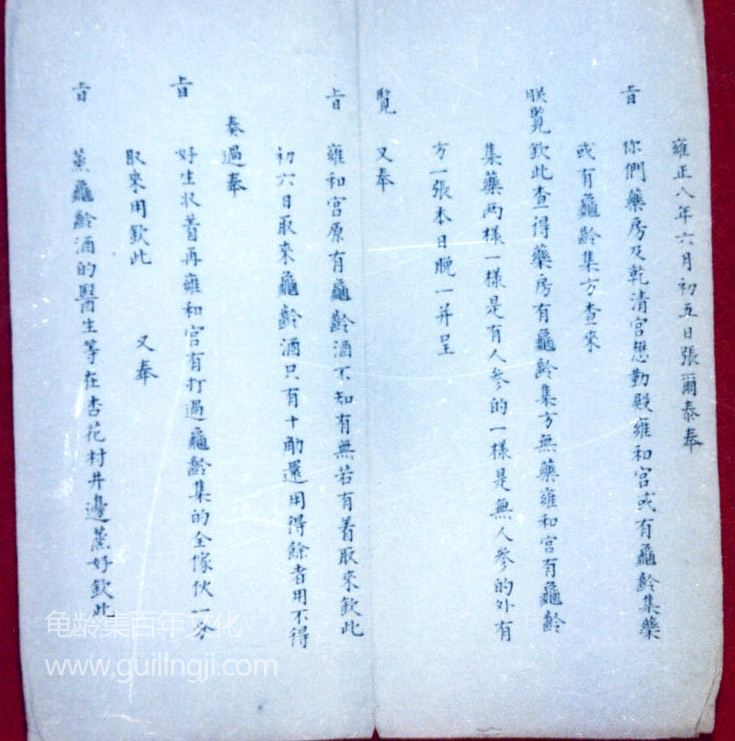 雍正八年六月初五日張爾泰奉
旨你們藥房及乾清宮懋勤殿雍和宮或有龜齡集藥
或有龜齡集方查來
朕覽欽此查得藥房有龜齡集方無藥雍和宮有龜齡
集藥兩樣一樣是有人參的一樣是無人參的外有
方一張本日晚一并呈
覽 又奉
旨雍和宮原有龜齡酒不知有無若有着取來欽此
初六日取來龜齡酒只有十觔還用得餘者用不得
奏過奉
旨好生收着再雍和宮有打過龜齡集的全傢伙一分
取來用欽此 又奉
旨蒸龜齡酒的醫生等在杏花村井邊蒸好欽此
龟龄集百年文化
www.guilingji.com